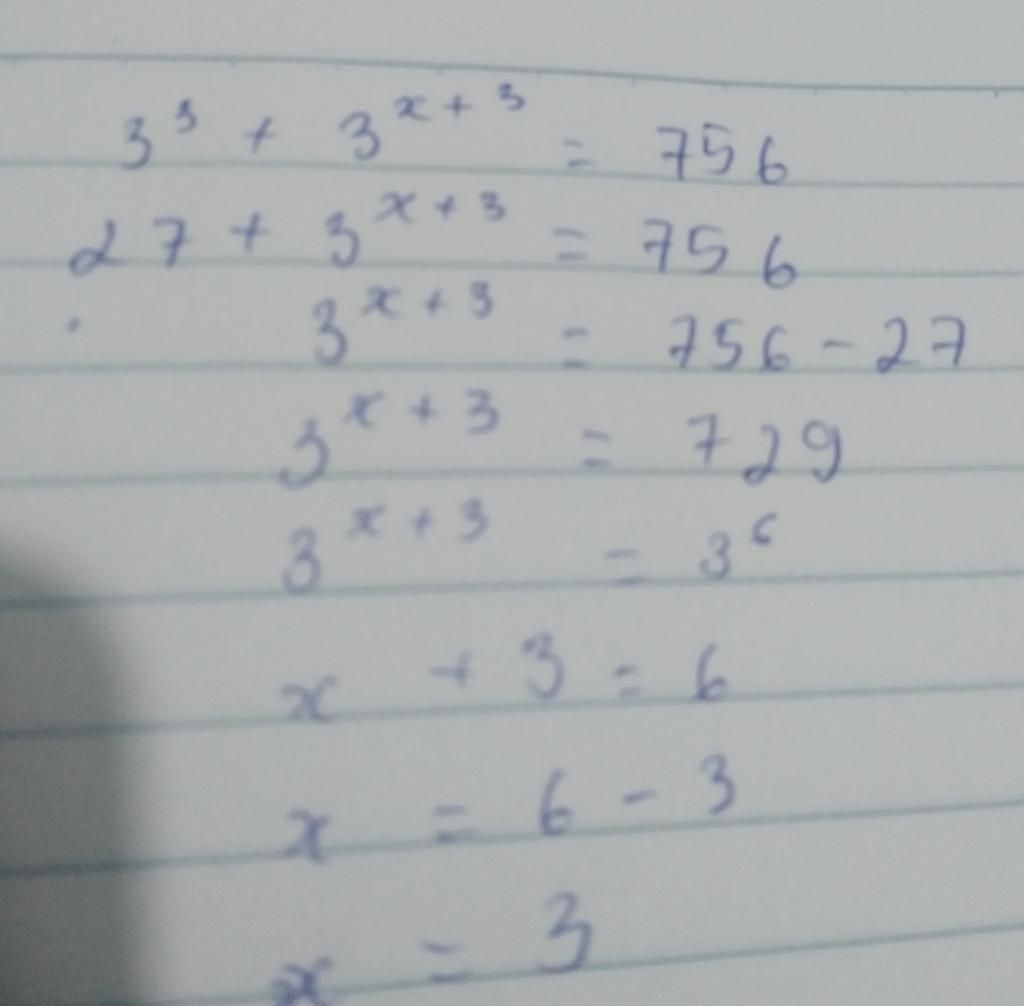 3³ + 3^(x + 3) = 756
27 + 3^(x + 3) = 756
3^(x + 3) = 756 - 27
3^(x + 3) = 729
3^(x + 3) = 3⁶
x + 3 = 6
x = 6 - 3
x = 3